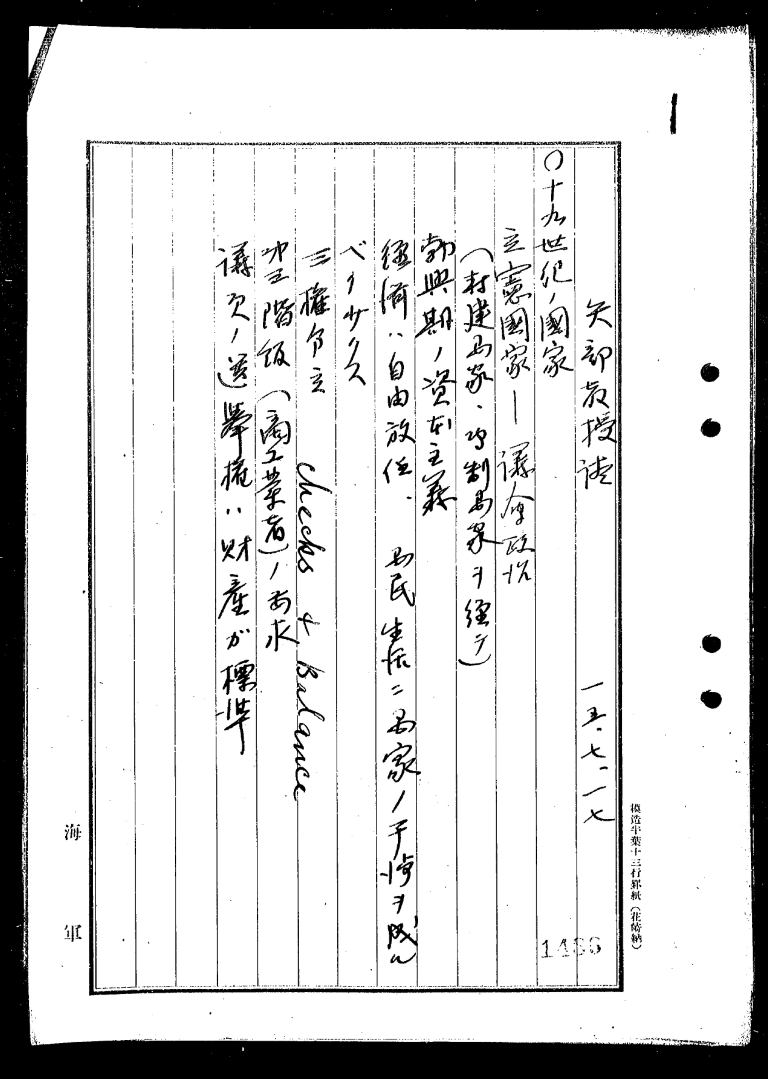 矢部教授談　一五・七・一七
〇十九世紀ノ國家
立憲國家―議会政治
（封建国家、専制国家ヲ経テ）
勃興期ノ資本主義
経済ハ自由放任、国民生活ニ国家ノ干渉ヲ
ベーシック
三権分立　checks & Balance
第三階級（商工業者）ノ要求
議員ノ選挙権ハ財産ガ標準
海軍
模造半葉十三行罫紙
1486